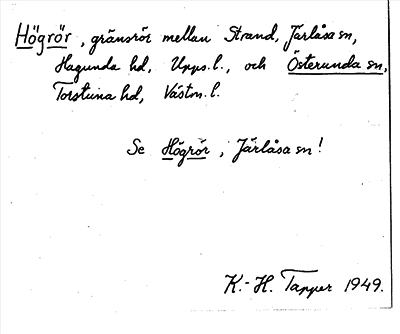 Högrör, gränsrör mellan Strand, Järlåsa sn,
Hagunda hd, Upps. l., och Österunda sn,
Torstuna hd, Västm. l.
Se Högrör, Järlåsa sn!
K.-H. Tapper 1949.